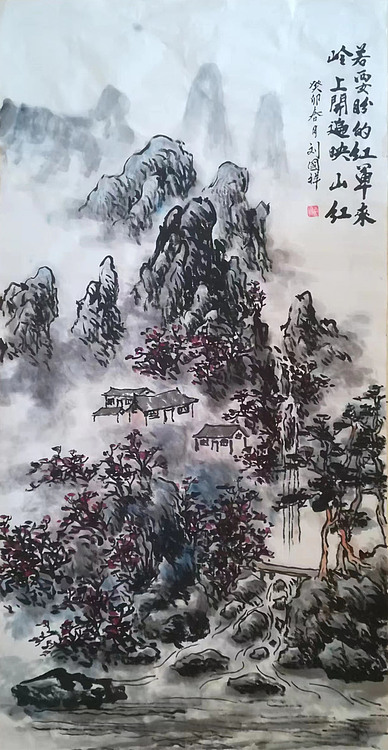 若要盼的红軍来
岭上開遍映山红
癸卯春月刘國祥